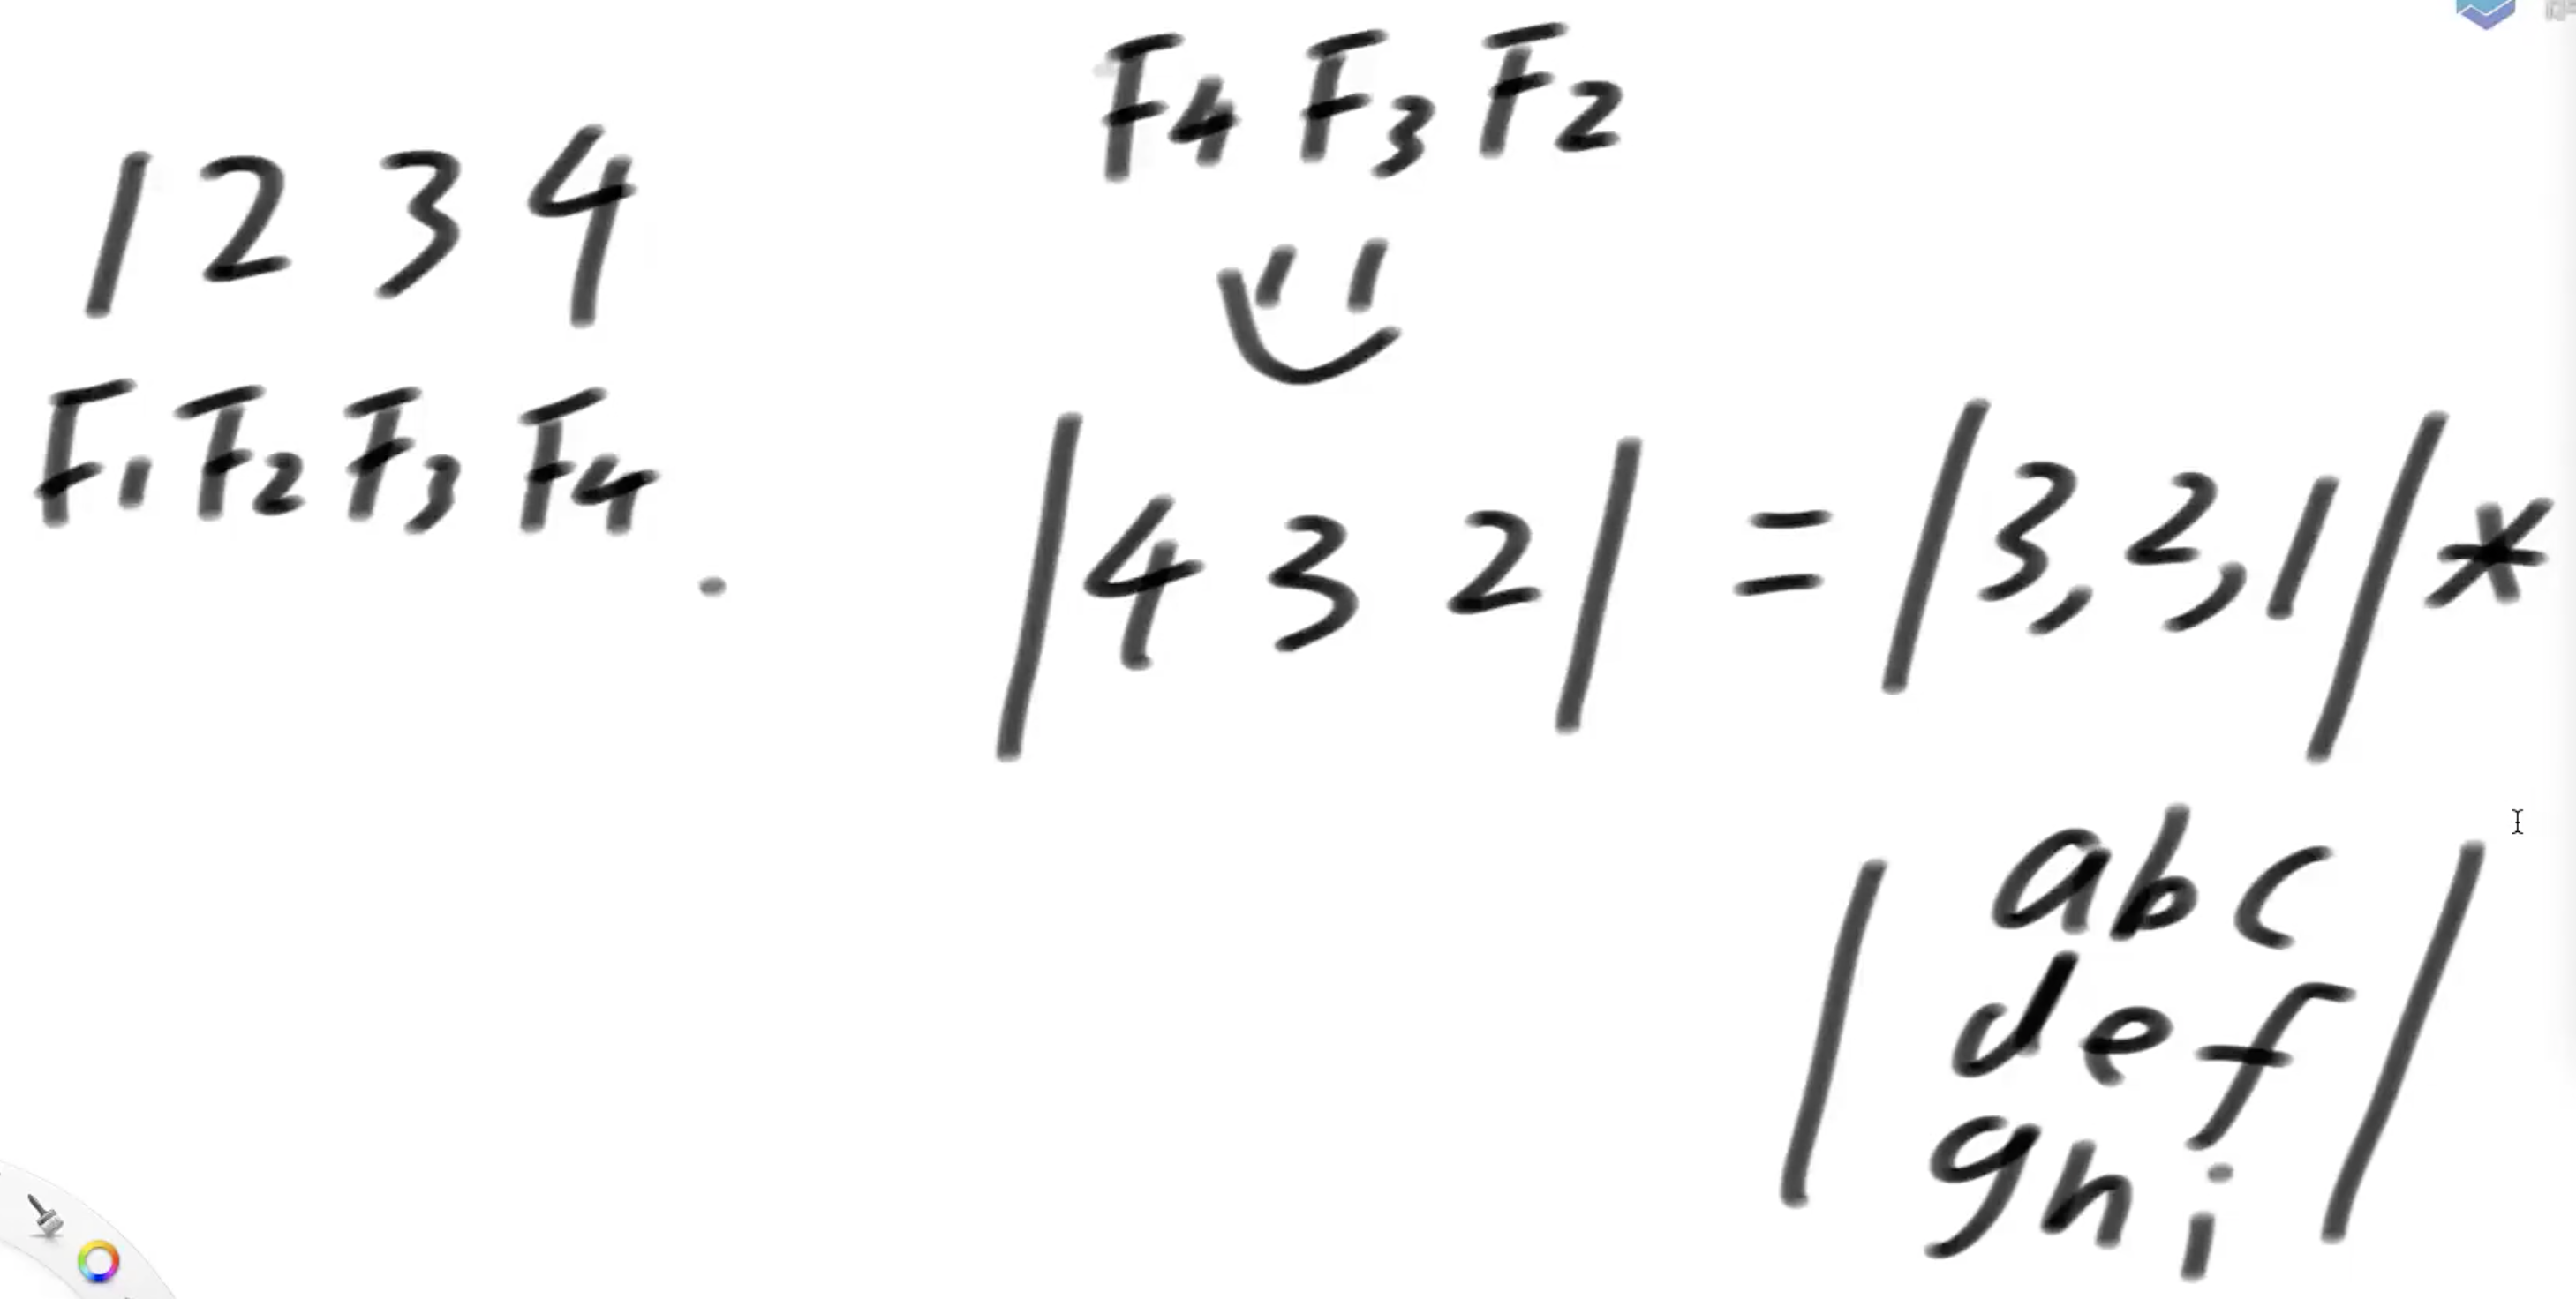 1 2 3 4
F1 F2 F3 F4
F4 F3 F2
|4 3 2| = |3,2,1| *
|a b c
d e f
g h i|